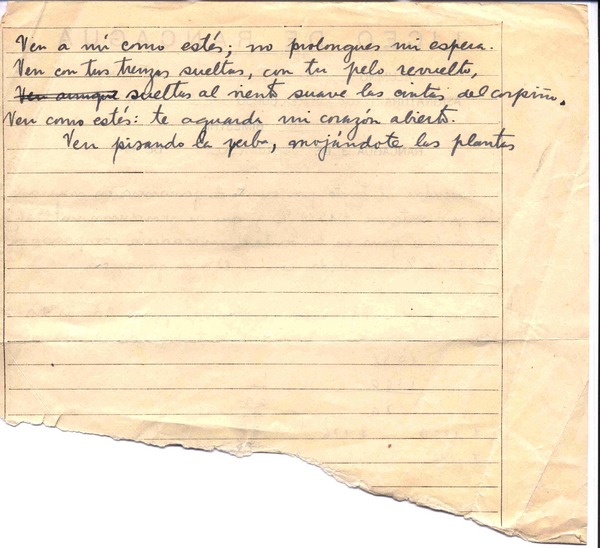 LICEO DE RANCAGUA
Ven a mí como estés; no prolongues mi espera.
Ven con tus trenzas sueltas, con tu pelo revuelto,
Ven aunque sueltas al viento suave las cintas del corpiño.
Ven como estés: te aguarda mi corazón abierto.
Ven pisando la yerba, mojándote las plantas